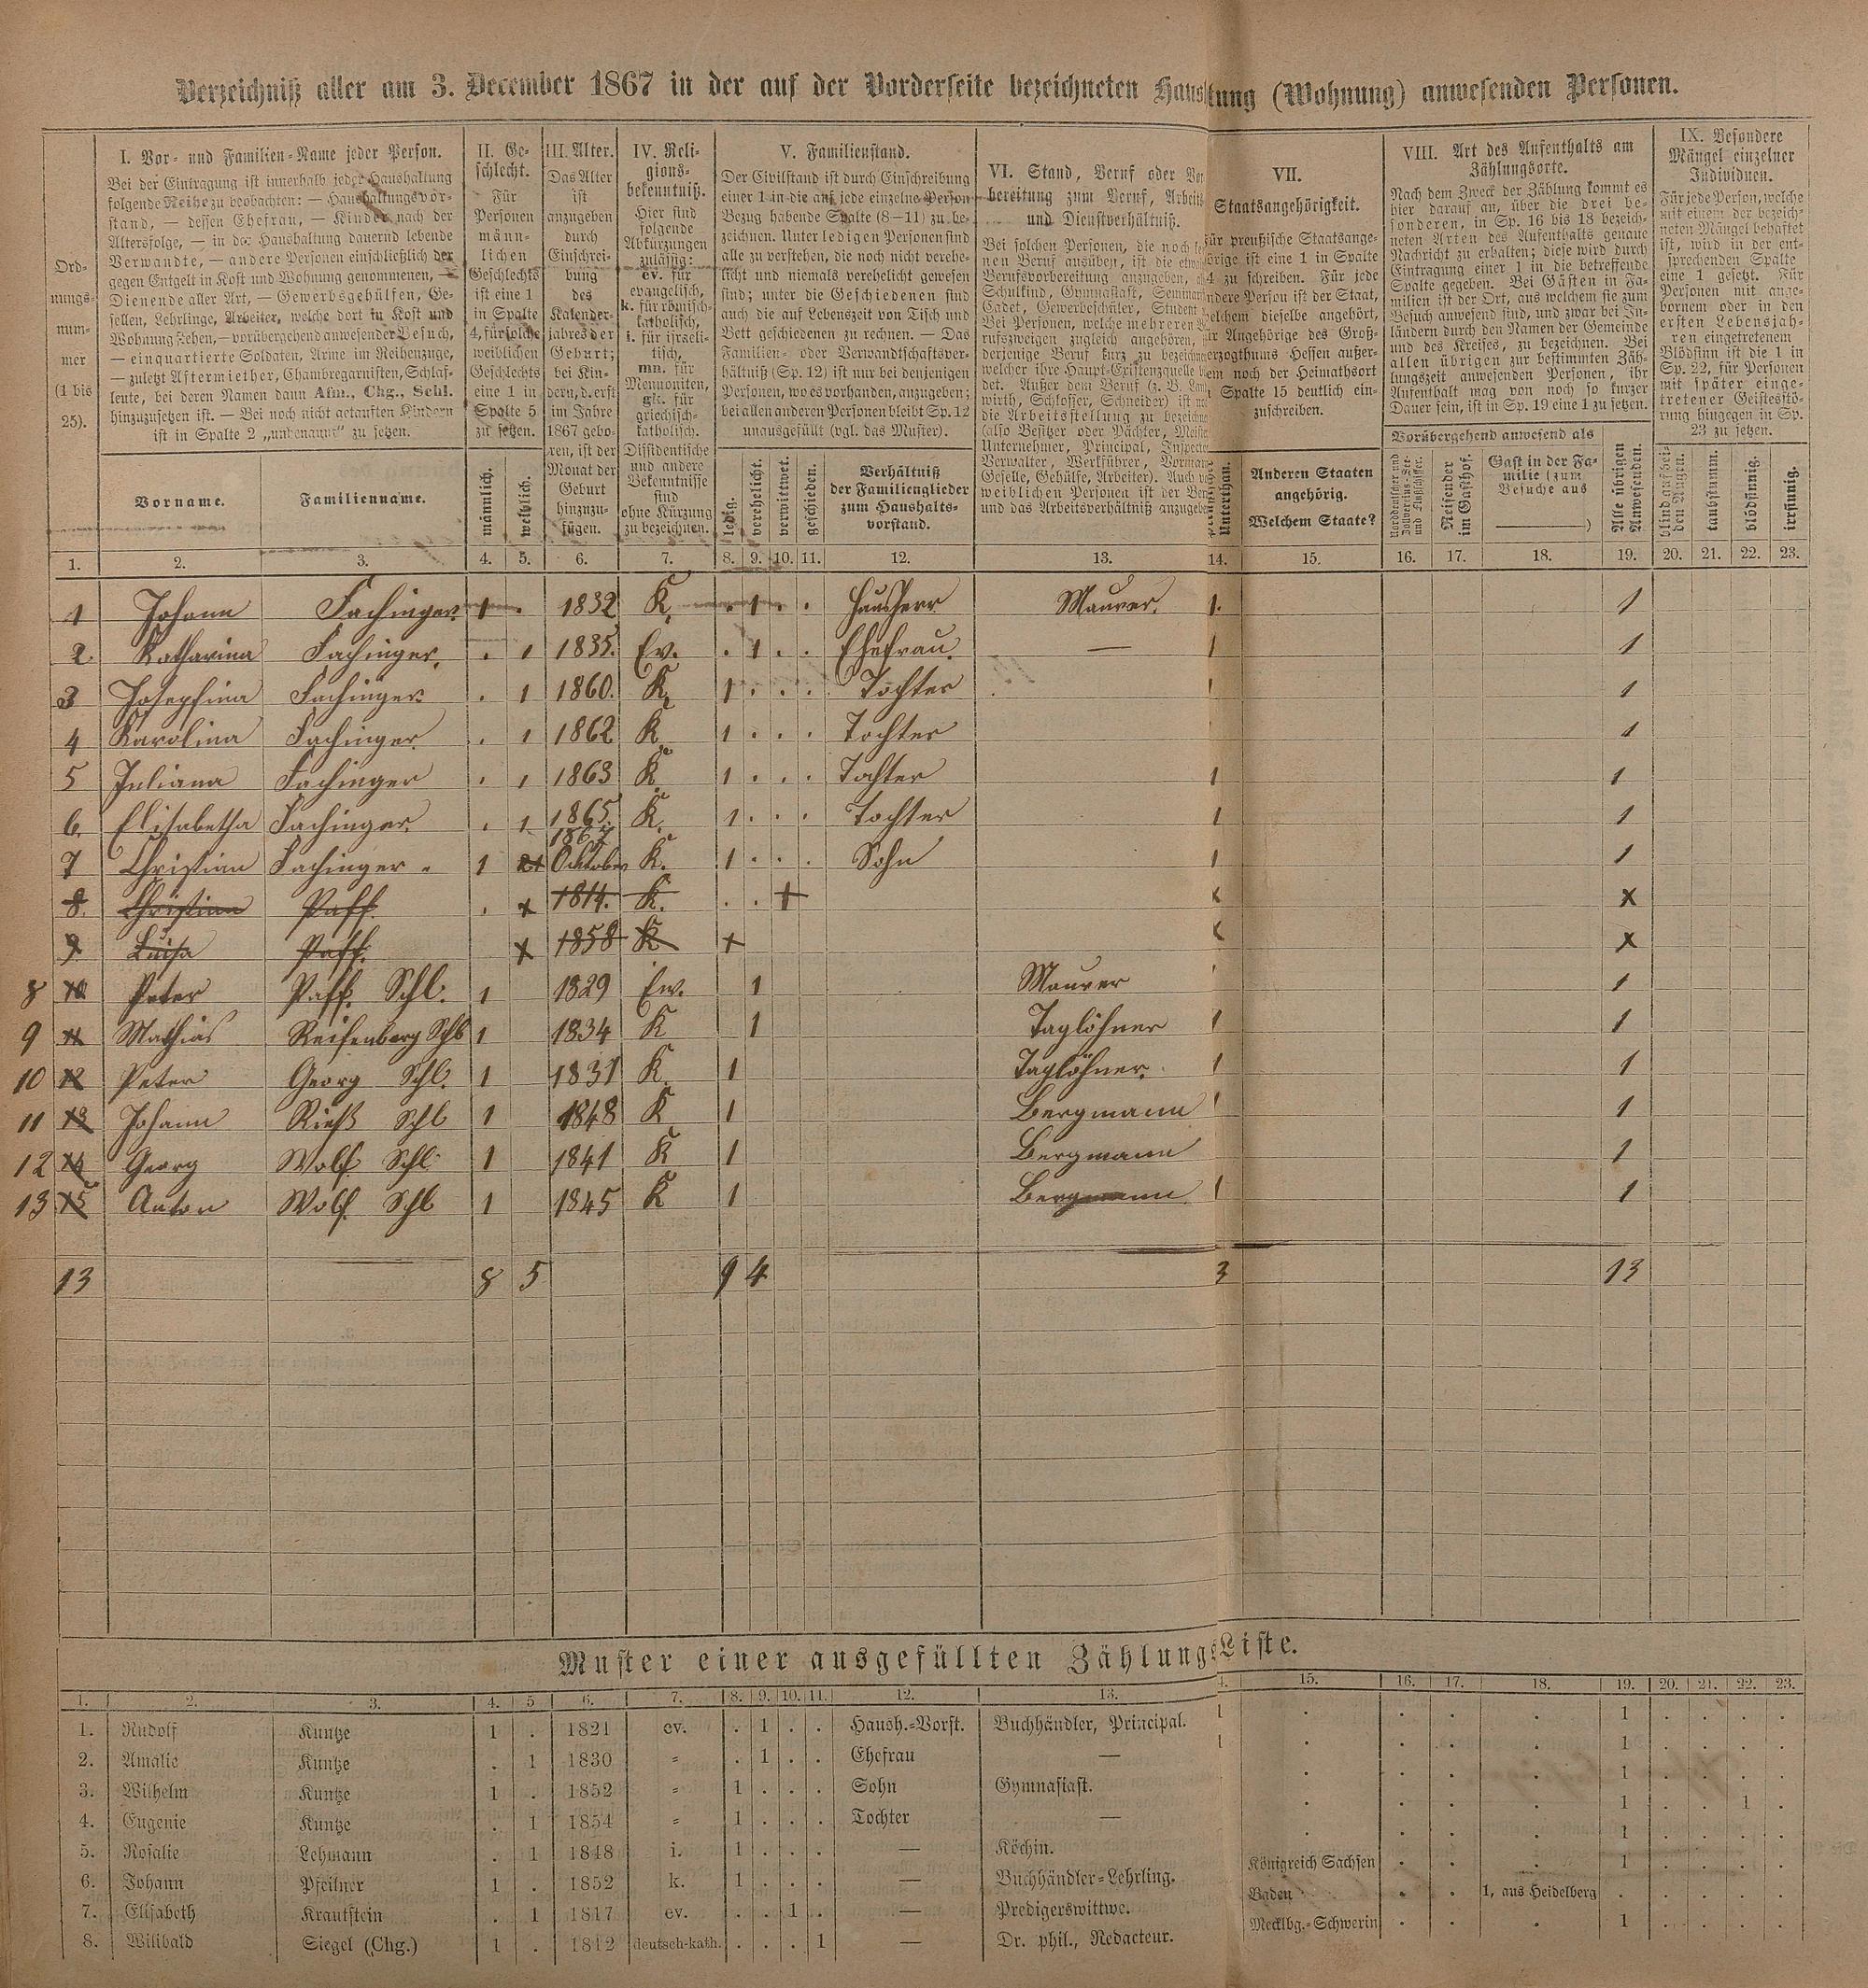 Verzeichniß aller am 3. December 1867 in der auf der Vorderseite bezeichneten Haus tung (Wohnung) anwesenden Personen.
Ord-
nungs-
num-
mer
(1 bis
25).
I. Vor- und Familien-Name jeder Person.
Bei der Eintragung ist innerhalb jeder Haushaltung
folgende Reihe zu beobachten: — Haushaltungsvor-
stand, — dessen Ehefrau, — Kinder nach der
Altersfolge, — in der Haushaltung dauernd lebende
Verwandte, — andere Personen einschließlich der
gegen Entgelt in Kost und Wohnung genommenen, —
Dienende aller Art, — Gewerbsgehülfen, Ge-
sellen, Lehrlinge, Arbeiter, welche dort in Kost und
Wohnung stehen, — vorübergehend anwesender Besuch,
— einquartierte Soldaten, Arme im Reihenzuge,
— zuletzt Aftermiether, Chambregarnisten, Schlaf-
leute, bei deren Namen dann Afm., Chg., Schl.
hinzuzusetzen ist. — Bei noch nicht getauften Kindern
ist in Spalte 2 „unbenannt" zu setzen.
Vorname.
Familienname.
II. Ge-
schlecht.
Für
Personen
männ-
lichen
Geschlechts
ist eine 1
in Spalte
4, für solche
weiblichen
Geschlechts
eine 1 in
Spalte 5
zu setzen.
männlich.
weiblich.
III. Alter.
Das Alter
ist
anzugeben
durch
Einschrei-
bung
des
Kalender-
jahres der
Geburt;
bei Kin-
dern, d. erst
im Jahre
1867 gebo-
ren, ist der
Monat der
Geburt
hinzuzu-
fügen.
IV. Reli-
gions-
bekenntniß.
Hier sind
folgende
Abkürzungen
zulässig:
ev. für
evangelisch,
k. für römisch-
katholisch,
i. für israeli-
tisch,
mn. für
Mennoniten,
gk. für
griechisch-
katholisch.
Dissidentische
und andere
Bekenntnisse
sind
ohne Kürzung
zu bezeichnen.
V. Familienstand.
Der Civilstand ist durch Einschreibung
einer 1 in die auf jede einzelne Person
Bezug habende Spalte (8—11) zu be-
zeichnen. Unter ledigen Personen sind
alle zu verstehen, die noch nicht verehe-
licht und niemals verehelicht gewesen
sind; unter die Geschiedenen sind
auch die auf Lebenszeit von Tisch und
Bett geschiedenen zu rechnen. — Das
Familien- oder Verwandtschaftsver-
hältniß (Sp. 12) ist nur bei denjenigen
Personen, wo es vorhanden, anzugeben;
bei allen anderen Personen bleibt Sp. 12
unausgefüllt (vgl. das Muster).
ledig.
verehelicht.
verwittwet.
geschieden.
Verhältniß
der Familienglieder
zum Haushalts-
vorstand.
VI. Stand, Beruf oder Vor
bereitung zum Beruf, Arbeits
und Dienstverhältniß.
Bei solchen Personen, die noch
nen Beruf ausüben, ist die
Berufsvorbereitung anzugeben,
Schulkind, Gymnasiast, Seminar
Cadet, Gewerbeschüler, Student
Bei Personen, welche mehreren
rufszweigen zugleich angehören,
derjenige Beruf kurz zu bezeichn
welcher ihre Haupt-Existenzquelle
det. Außer dem Beruf (z. B.
wirth, Schlosser, Schneider) ist
die Arbeitsstellung zu bezeichn
(also Besitzer oder Pächter, Meiste
Unternehmer, Principal, Inspecto
Verwalter, Werkführer, Vorman
Geselle, Gehülfe, Arbeiter). Auch
weiblichen Personen ist der
und das Arbeitsverhältniß anzugeb
VII.
Staatsangehörigkeit.
für preußische Staatsange-
hörige ist eine 1 in Spalte
4 zu schreiben. Für jede
andere Person ist der Staat,
welchem dieselbe angehört,
für Angehörige des Groß-
herzogthums Hessen außer-
dem noch der Heimathsort
Spalte 15 deutlich ein-
zuschreiben.
Unterthan.
Anderen Staaten
angehörig.
Welchem Staate?
VIII. Art des Aufenthalts am
Zählungsorte.
Nach dem Zweck der Zählung kommt es
hier darauf an, über die drei be-
sonderen, in Sp. 16 bis 18 bezeich-
neten Arten des Aufenthalts genaue
Nachricht zu erhalten; diese wird durch
Eintragung einer 1 in die betreffende
Spalte gegeben. Bei Gästen in Fa-
milien ist der Ort, aus welchem sie zum
Besuch anwesend sind, und zwar bei In-
ländern durch den Namen der Gemeinde
und des Kreises, zu bezeichnen. Bei
allen übrigen zur bestimmten Zäh-
lungszeit anwesenden Personen, ihr
Aufenthalt mag von noch so kurzer
Dauer sein, ist in Sp. 19 eine 1 zu setzen.
Vorübergehend anwesend als
Norddeutscher und
Zollvereins-See-
und Flußschiffer.
Reisender
im Gasthof.
Gast in der Fa-
milie (zum
Besuche aus
)
Alle übrigen
Anwesenden.
IX. Besondere
Mängel einzelner
Individuen.
Für jede Person, welche
mit einem der bezeich-
neten Mängel behaftet
ist, wird in der ent-
sprechenden Spalte
eine 1 gesetzt. Für
Personen mit ange-
bornem oder in den
ersten Lebensjah-
ren eingetretenem
Blödsinn ist die 1 in
Sp. 22, für Personen
mit später einge-
tretener Geistesstö-
rung hingegen in Sp.
23 zu setzen.
blind auf bei-
den Augen.
taubstumm.
blödsinnig.
irrsinnig.
1. 2. 3. 4. 5. 6. 7. 8. 9. 10. 11. 12. 13. 14. 15. 16. 17. 18. 19. 20. 21. 22. 23.
1 Johann Fachinger. 1 . 1832 K. . 1 . . Hausherr Maurer. 1. 1
2. Katharina Fachinger. . 1 1835. Ev. . 1 . . Ehefrau. — 1 1
3 Josephina Fachinger . 1 1860. K. 1 . . . Tochter 1 1
4 Karolina Fachinger . 1 1862 K 1 . . . Tochter 1
5 Juliana Fachinger . 1 1863 K. 1 . . . Tochter 1 1
6. Elisabetha Fachinger . 1 1865. K. 1 . . . Tochter 1 1
7 Christian Fachinger 1 1867 Oktober K. 1 . . . Sohn 1 1
8. Christina Paff. . x 1814. K. . . + x x
9 Luisa Paff. x 1858 K + x x
8 10 Peter Paff. Schl. 1 1829 Ev. 1 Maurer 1
9 11 Mathias Reifenberg Schl 1 1834 K 1 Taglöhner 1 1
10 12 Peter Georg Schl. 1 1831 K. 1 Taglöhner. 1 1
11 13 Johann Rieß Schl 1 1848 K 1 Bergmann 1 1
12 14 Georg Wolf Schl 1 1841 K 1 Bergmann 1
13 15 Anton Wolf. Schl 1 1845 K 1 Bergmann 1 1
13 8 5 9 4 3 13
Muster einer ausgefüllten Zählungs Liste.
1. 2. 3. 4. 5 6. 7. 8. 9. 10. 11. 12. 13. 4. 15. 16. 17. 18. 19. 20. 21. 22. 23.
1. Rudolf Kuntze 1 . 1821 ev. . 1 . . Haush.-Vorst. Buchhändler, Principal. 1 . . . . 1 . . . .
2. Amalie Kuntze . 1 1830 = . 1 . . Ehefrau — 1 . . . . 1 . . . .
3. Wilhelm Kuntze 1 . 1852 = 1 . . . Sohn Gymnasiast. . . . . 1 . . . .
4. Eugenie Kuntze . 1 1854 = 1 . . . Tochter — . . . . 1 . . 1 .
5. Rosalie Lehmann . 1 1848 i. 1 . . . — Köchin. . . . . 1 . . . .
6. Johann Pfeilner 1 . 1852 k. 1 . . . — Buchhändler-Lehrling. Königreich Sachsen . . . 1 . . . .
7. Elisabeth Krautstein . 1 1817 ev. . . 1 . — Predigerswittwe. Baden . . 1, aus Heidelberg . . . . .
8. Wilibald Siegel (Chg.) 1 . 1812 deutsch-kath. . . . 1 — Dr. phil., Redacteur. Mecklbg.-Schwerin . . . 1 . . . .